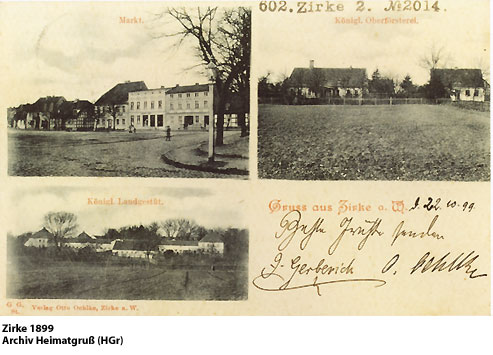 602. Zirke 2. №2014.
Markt.
Königl. Oberförsterei.
Königl. Landgestüt.
Gruss aus Zirke a. W.
d. 22.10.99
Beste Grüße senden
J. Gerberich O. Oehlke
G G.
Verlag Otto Oehlke, Zirke a. W.
Zirke 1899
Archiv Heimatgruß (HGr)